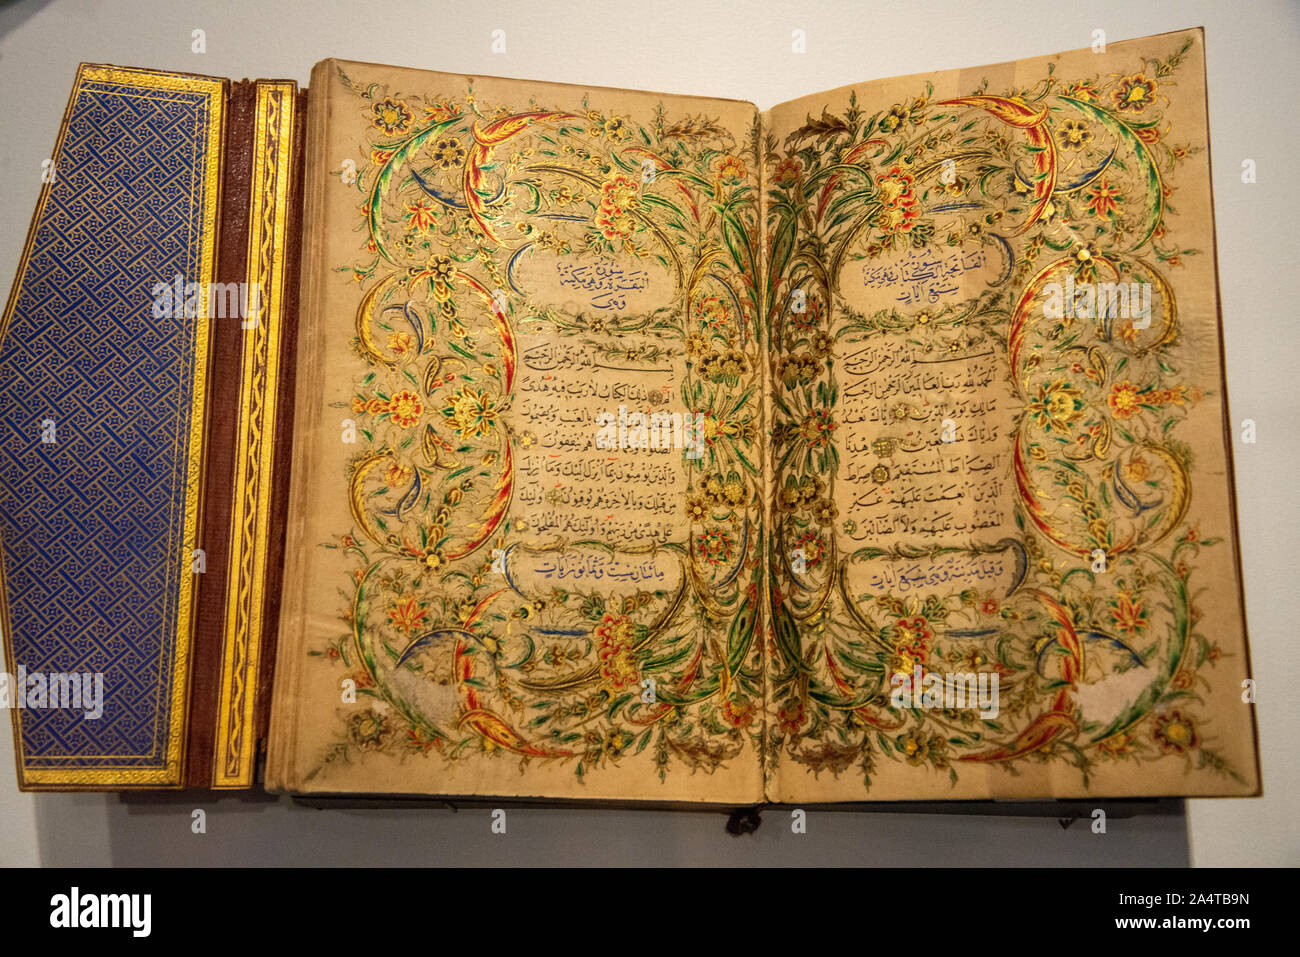 الفاتحة
سبع آيات
بسم الله الرحمن الرحيم
الحمد لله رب العالمين الرحمن الرحيم
مالك يوم الدين إياك نعبد
وإياك نستعين هدنا
الصراط المستقيم صراط
الذين أنعمت عليهم غير
المغضوب عليهم ولا الضالين
وقيل مدنية وهي سبع آيات
سورة
البقرة وهي مكية
وهي
بسم الله الرحمن الرحيم
الم ذلك الكتاب لا ريب فيه هدى
للمتقين الذين يؤمنون بالغيب ويقيمون
الصلوة ومما رزقناهم ينفقون
والذين يؤمنون بما أنزل إليك وما أنزل
من قبلك وبالآخرة هم يوقنون أولئك
على هدى من ربهم وأولئك هم المفلحون
مائتان وست وثمانون آيات
alamy
a
alamy stock photo
Image ID: 2A4TB9N
www.alamy.com